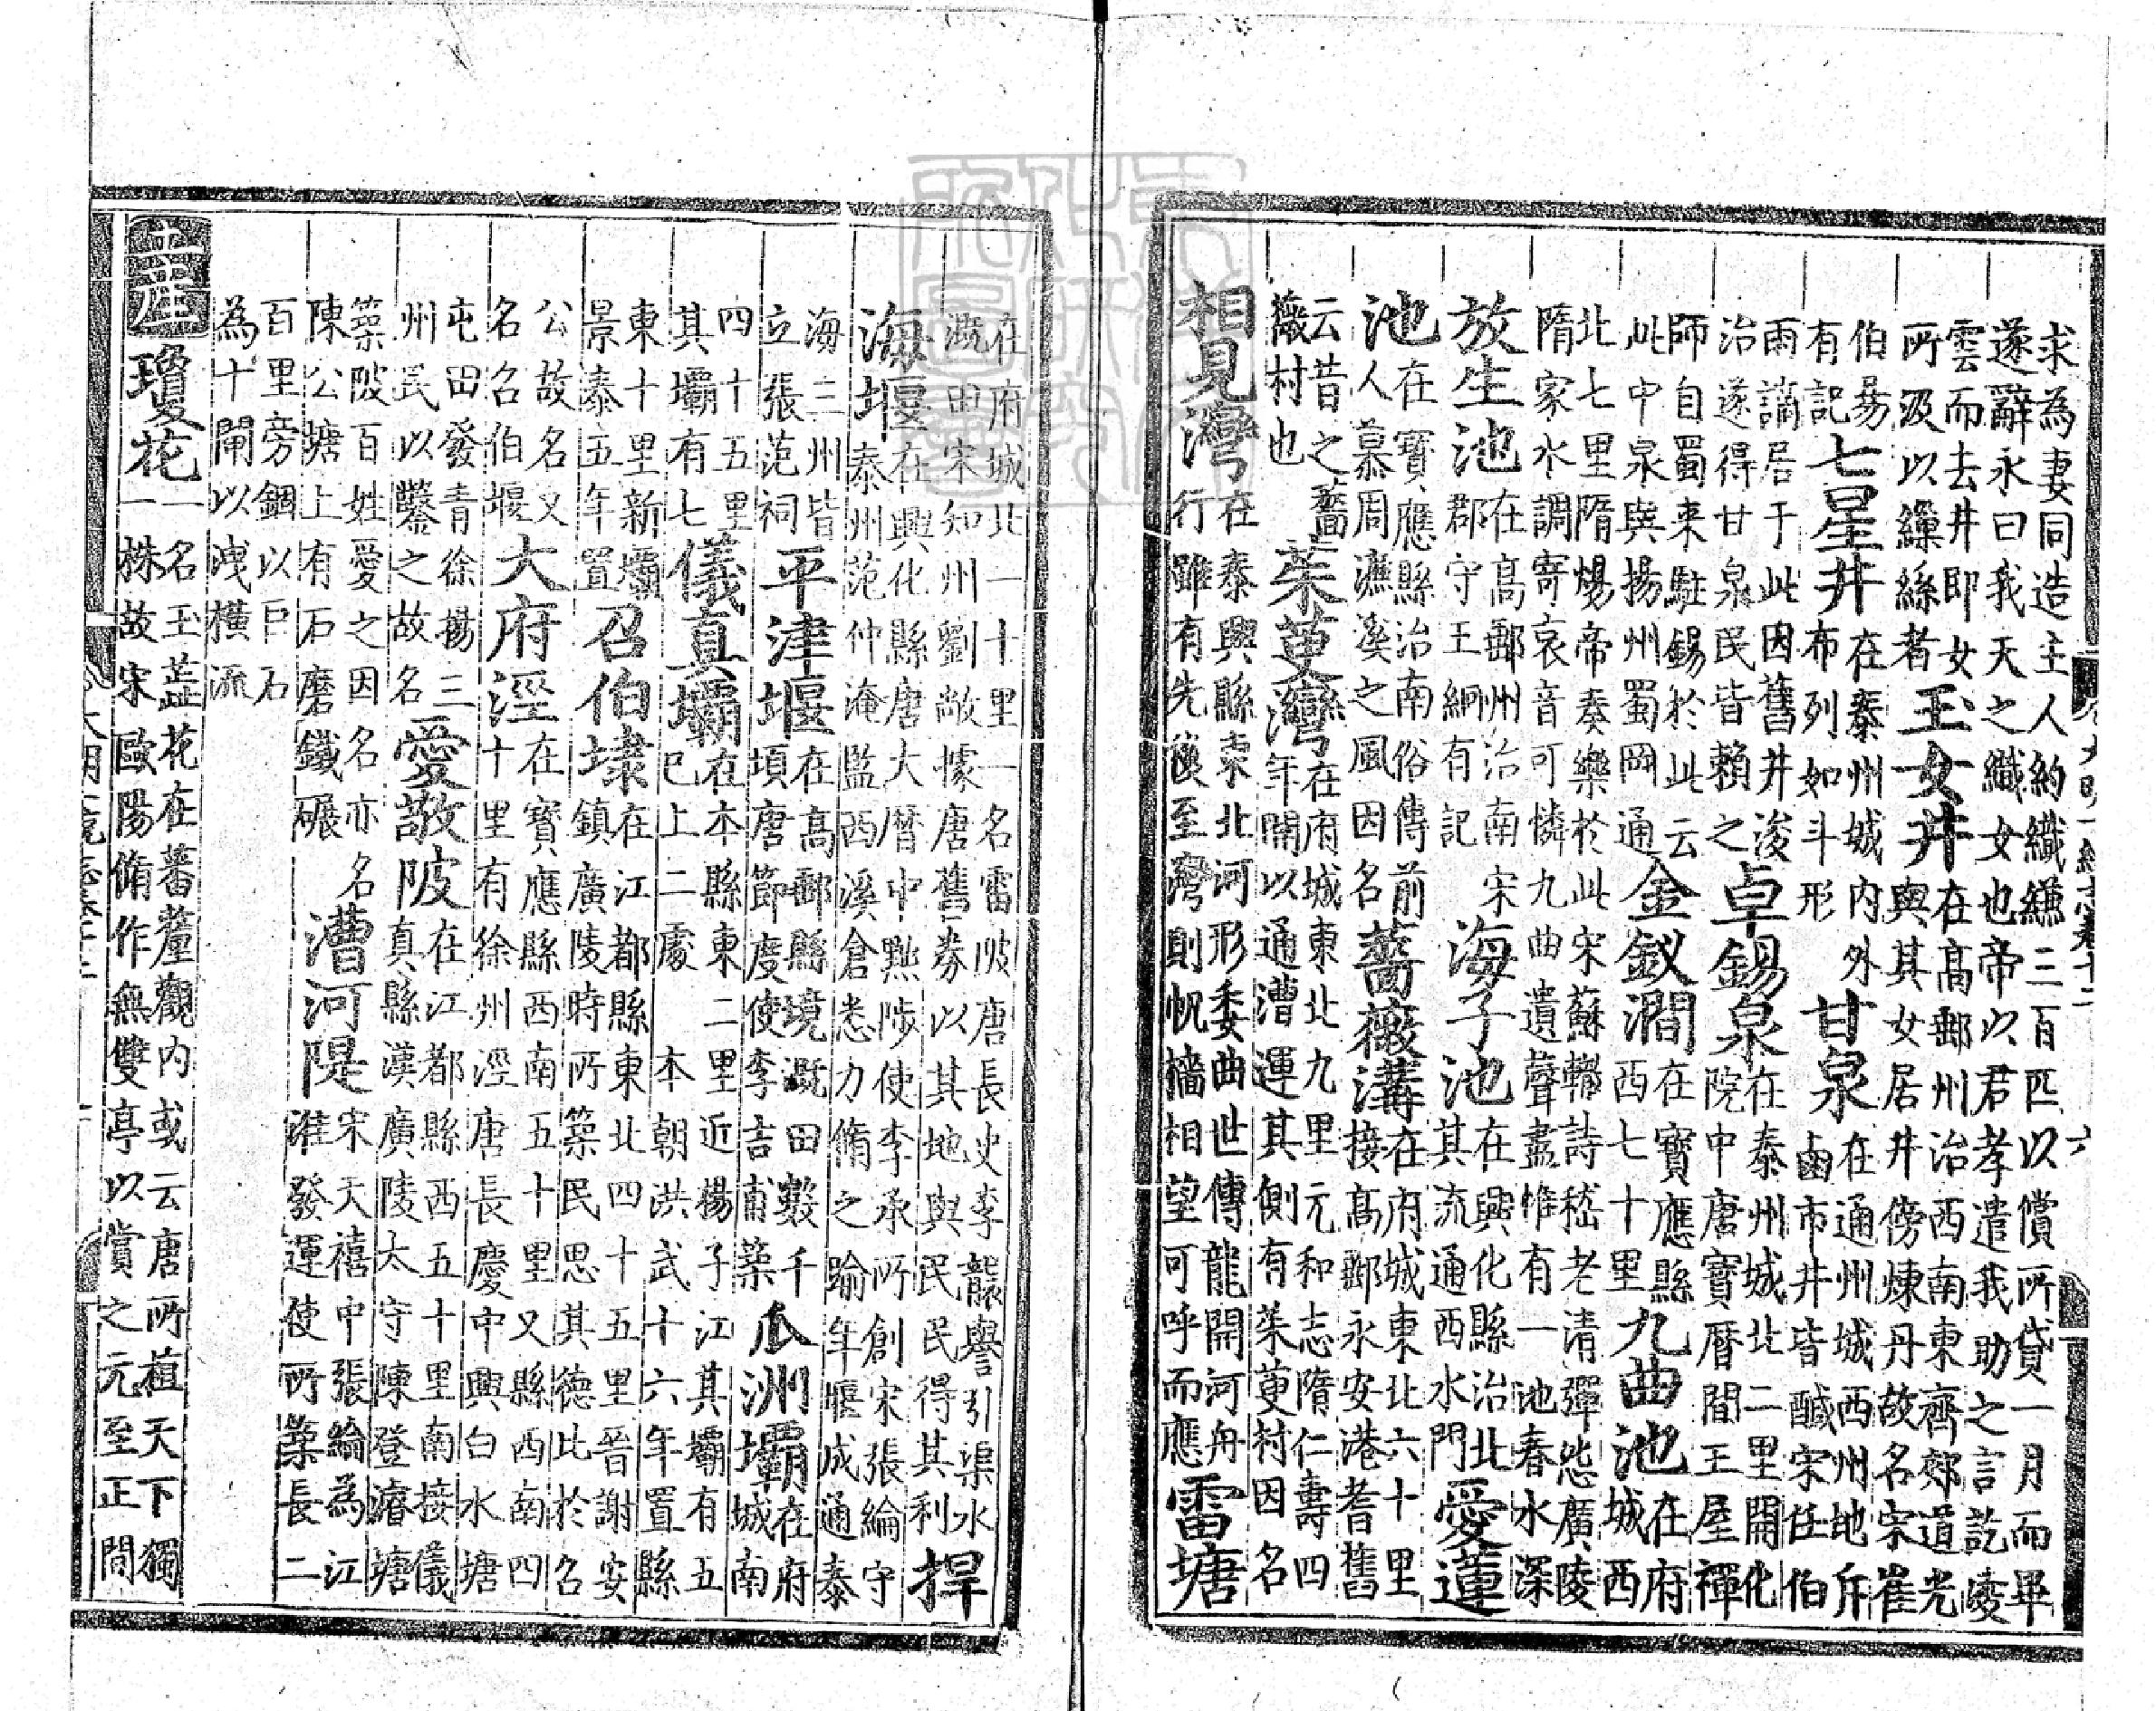 求為妻同造主人約織縑三百匹以償所貸一月而畢
遂辭永曰我天之織女也帝以君孝遣我助之言訖凌
雲而去井即女
玉女井在高郵州治西南東齊郊道光
所汲以繰絲者
與其女居井傍煉丹故名宋崔
伯昜
有記
七星井在泰州城內外
布列如斗形
甘泉在通州城西州地斥
鹵市井皆醎宋任伯
雨謫居于此因舊井浚
治遂得甘泉民皆賴之
卓錫泉在泰州城北二里開化
院中唐寶曆間王屋禪
師自蜀来駐錫於此云
此中泉與揚州蜀岡通
金釵澗在寶應縣
西七十里
九曲池在府
城西
北七里隋煬帝奏樂於此宋蘇轍詩嵇老清彈怨廣陵
隋家水調寄哀音可憐九曲遺聲盡惟有一池春水深
放生池在高郵州治南宋
郡守王綱有記
海子池在興化縣治北
其流通西水門
愛蓮
池在寶應縣治南俗傳前
人慕周濂溪之風因名
薔薇溝在府城東北六十里
接高郵永安港耆舊
云昔之薔
薇村也
茱萸灣在府城東北九里元和志隋仁壽四
年開以通漕運其側有茱萸村因名
相見灣在泰興縣東北河形委曲世傳龍開河舟
行雖有先後至灣則帆檣相望可呼而應
雷塘
在府城北一十里一名雷陂唐長史李襲譽引渠水
溉田宋知州劉敞據唐舊券以其地與民民得其利
捍
海堰在興化縣唐大曆中黜陟使李承所創宋張綸守
泰州范仲淹監西溪倉悉力脩之踰年堰成通泰
海三州皆
立張范祠
平津堰在高郵縣境溉田數千
頃唐節度使李吉甫築
瓜洲壩在府
城南
四十五里
其壩有七
儀真壩在本縣東二里近楊子江其壩有五
已上二處 本朝洪武十六年置縣
東十里新壩
景泰五年置
召伯埭在江都縣東北四十五里晉謝安
鎮廣陵時所築民思其德此於召
公故名又
名召伯堰
大府涇在寶應縣西南五十里又縣西南四
十里有徐州涇唐長慶中興白水塘
屯田發青徐揚三
州民以鑿之故名
愛敬陂在江都縣西五十里南接儀
真縣漢廣陵太守陳登濬塘
築陂百姓愛之因名亦名
陳公塘上有石磨鐵碾
漕河隄宋天禧中張綸為江
淮發運使所築長二
百里旁錮以巨石
為十閘以洩橫流
土產
瓊花一名玉蘂花在蕃釐觀內或云唐所植天下獨
一株故宋歐陽脩作無雙亭以賞之元至正間